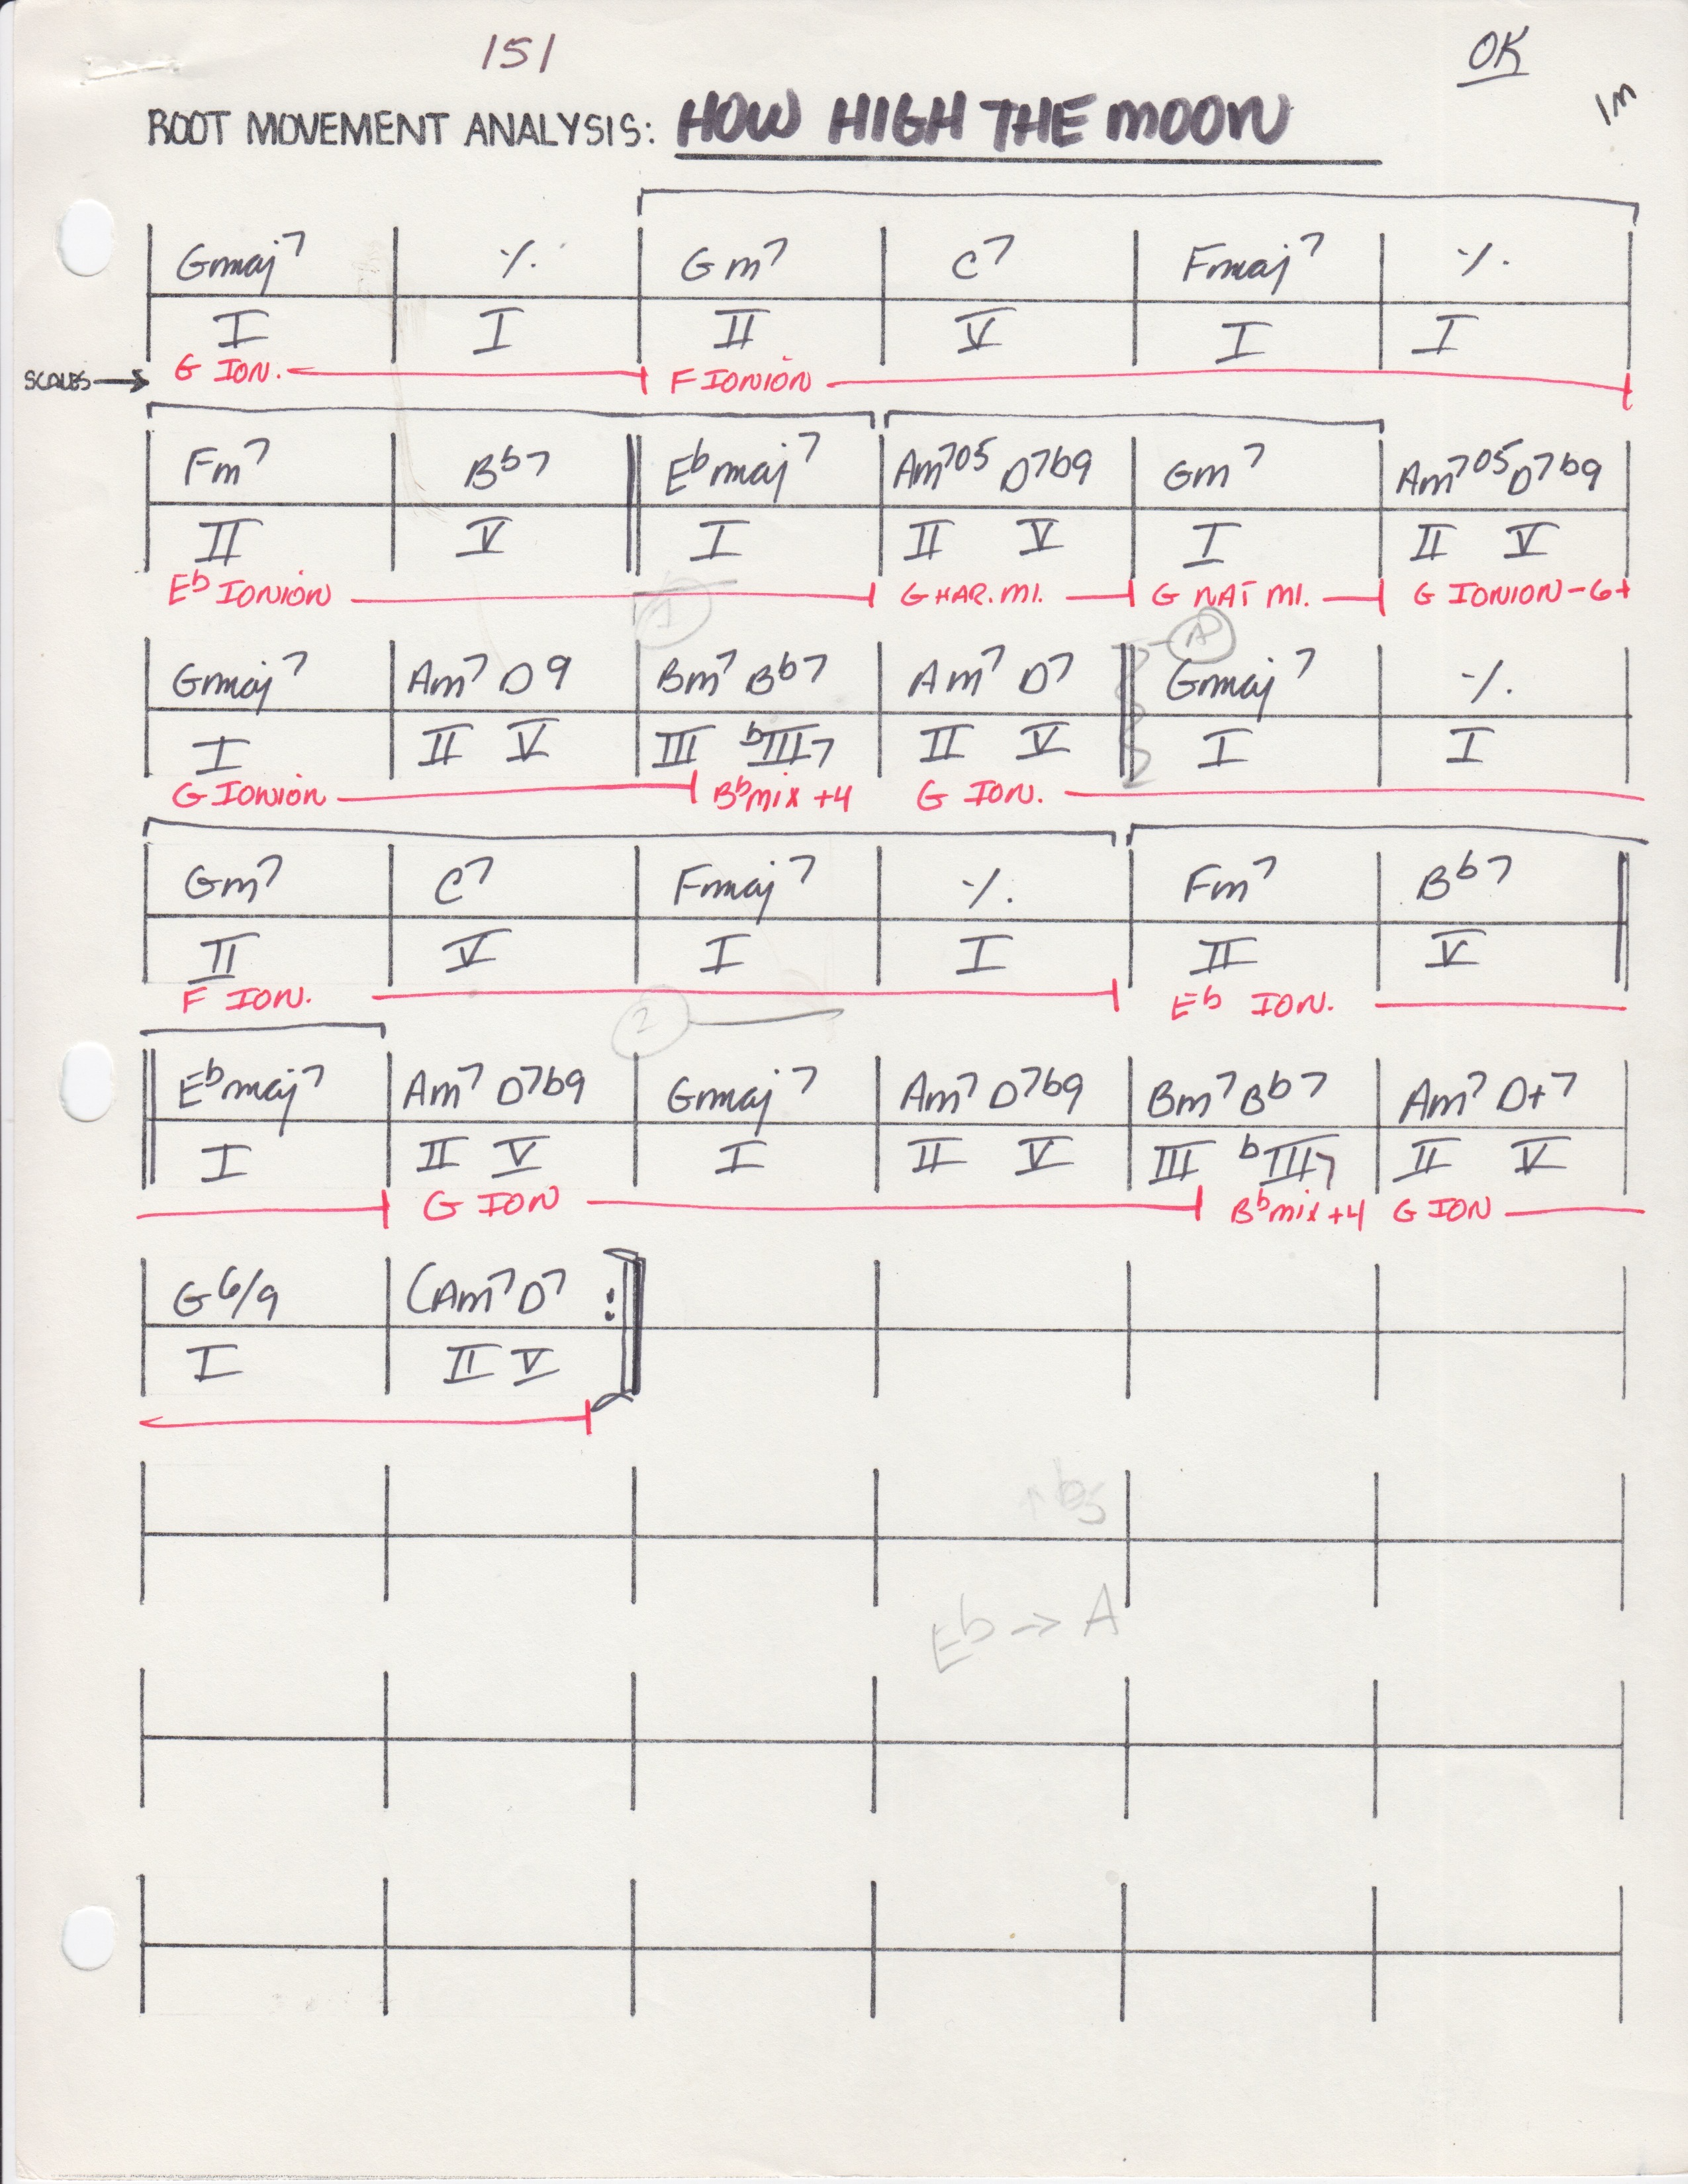 151
OK
1M
ROOT MOVEMENT ANALYSIS: HOW HIGH THE MOON
Gmaj7 ٪ Gm7 C7 Fmaj7 ٪
I I II V I I
SCALES → G ION. F IONION
Fm7 Bb7 Ebmaj7 Am705 D7b9 Gm7 Am705 D7b9
II V I II V I II V
Eb IONION G HAR. MI. G NAT MI. G IONION-6
1
A
Gmaj7 Am7 D9 Bm7 Bb7 Am7 D7 Gmaj7 ٪
I II V III bIII7 II V I I
G IONION Bb mix +4 G ION.
Gm7 C7 Fmaj7 ٪ Fm7 Bb7
II V I I II V
F ION. Eb ION.
2
Ebmaj7 Am7 D7b9 Gmaj7 Am7 D7b9 Bm7 Bb7 Am7 D+7
I II V I II V III bIII7 II V
G ION Bb mix +4 G ION
G6/9 (Am7 D7 :
I II V
b5
Eb → A